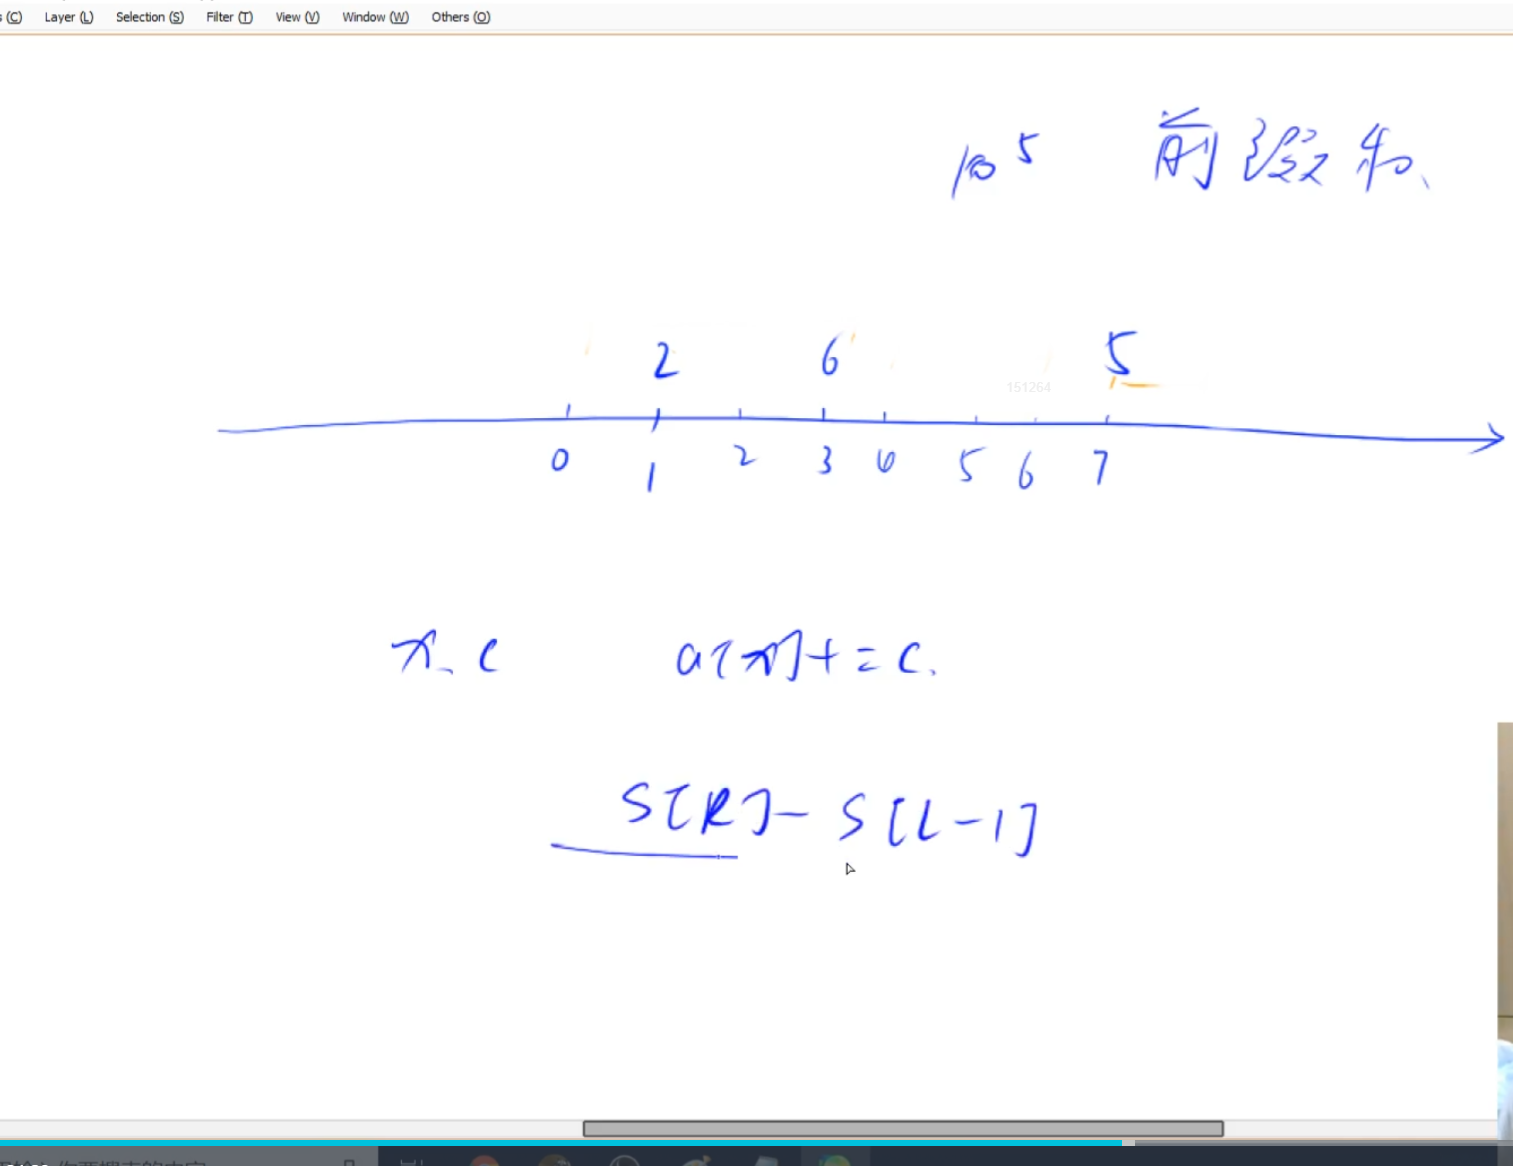 (C) Layer (L) Selection (S) Filter (T) View (V) Window (W) Others (O)
10⁵ 前缀和、
2 6 5
151264
0 1 2 3 4 5 6 7
x. c a[x] += c.
S[R] - S[L-1]